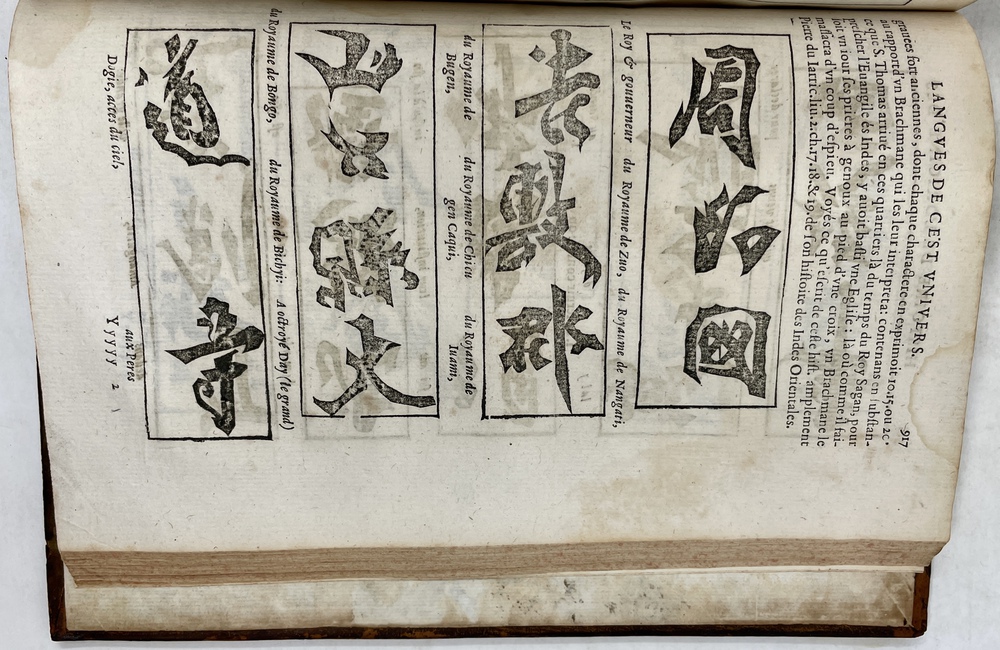 LANGVES DE CEST VNIVERS. 917
grauées fort anciennes, dont chaque charactere en exprimoit 10.15.ou 20.
au rapport d'vn Brachmane qui les leur interpreta: contenans en substan-
ce que S. Thomas arriué en ces quartiers là du temps du Roy Sagan, pour
prescher l'Euangile és Indes, y auoit basti vne Eglise: là où comme il fai-
soit vn iour ses prieres à genoux au pied d'vne croix, vn Brachmane le
massacra d'vn coup d'espieu. Voyés ce qu'escrit de ceste hist. amplement
Pierre du Iarric.liu.2.ch.17.18.& 19.de son histoire des Indes Orientales.
周 國
Le Roy & gouuerneur du Royaume de Zuo, du Royaume de Nangati,
du Royaume de Bugen, du Royaume de Chicugen Caqui, du Royaume de Iuami,
大
du Royaume de Bongo, du Royaume de Bichyi: A octroyé Day (le grand)
道 寺
Dogie, accés du ciel, aux Peres
Yyyyy 2